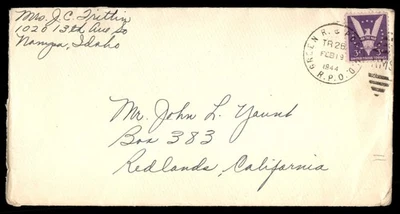 Mrs. J. C. Trittin
1020 13th Ave So
Nampa, Idaho
GREEN R. &
TR 26
FEB 19
1944
R.P.O.
3¢
Mr. John L. Yount
Box 383
Redlands, California